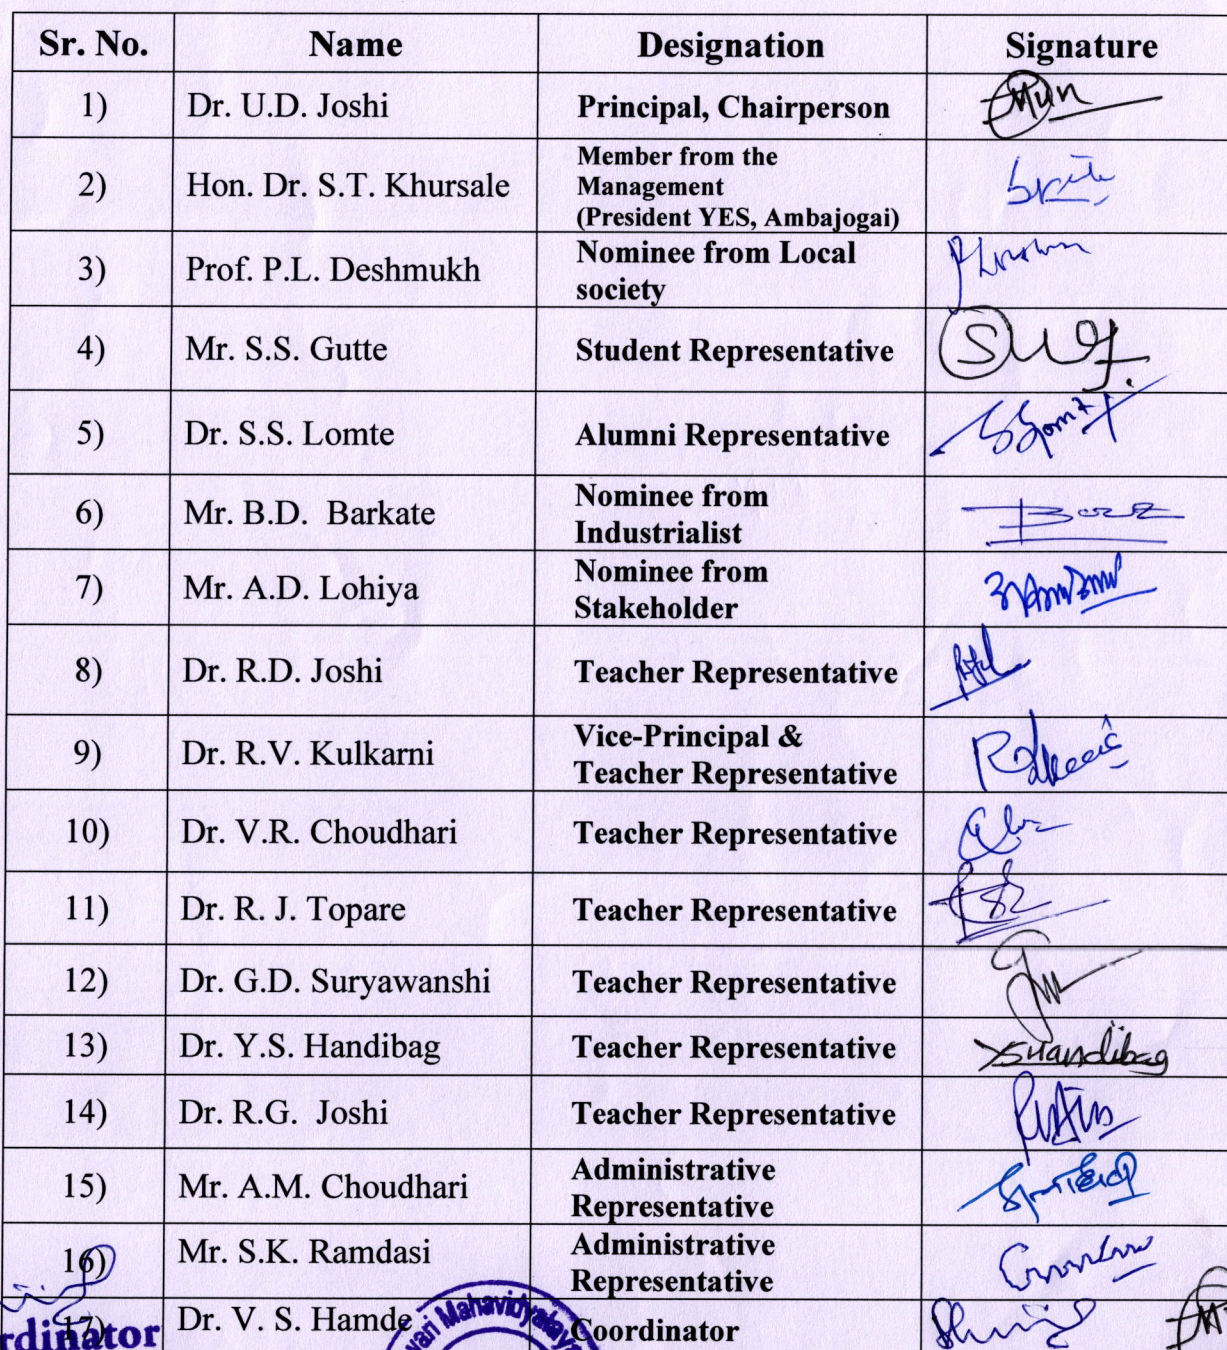 Sr. No. Name Designation Signature
1) Dr. U.D. Joshi Principal, Chairperson
2) Hon. Dr. S.T. Khursale Member from the
Management
(President YES, Ambajogai)
3) Prof. P.L. Deshmukh Nominee from Local
society
4) Mr. S.S. Gutte Student Representative
5) Dr. S.S. Lomte Alumni Representative
6) Mr. B.D. Barkate Nominee from
Industrialist
7) Mr. A.D. Lohiya Nominee from
Stakeholder
8) Dr. R.D. Joshi Teacher Representative
9) Dr. R.V. Kulkarni Vice-Principal &
Teacher Representative
10) Dr. V.R. Choudhari Teacher Representative
11) Dr. R. J. Topare Teacher Representative
12) Dr. G.D. Suryawanshi Teacher Representative
13) Dr. Y.S. Handibag Teacher Representative YSHandibag
14) Dr. R.G. Joshi Teacher Representative
15) Mr. A.M. Choudhari Administrative
Representative
16) Mr. S.K. Ramdasi Administrative
Representative
17) Dr. V. S. Hamde Coordinator
rdinator
wari Mahavidyalaya